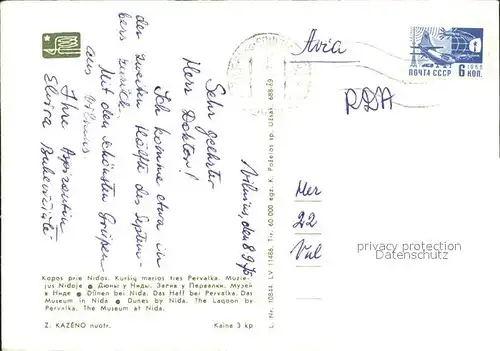 Vilnius, den 8 9 70
Sehr geehrter
Herr Doktor!
Ich komme etwa in
der zweiten Hälfte des Septem-
bers zurück.
Mit den schönsten Grüßen
aus Vilnius
Ihre Aspirantin
Elvira
Avia
ПОЧТА СССР 6 КОП.
1966
RDA
Mer
22
Val
privacy protection
watermark
Kopos prie Nidos. Kuršių marios ties Pervalka. Muzie-
jus Nidoje ● Дюны у Ниды. Залив у Первалки. Музей
в Ниде ● Dünen bei Nida. Das Haff bei Pervalka. Das
Museum in Nida ● Dunes by Nida. The Lagoon by
Pervalka. The Museum at Nida.
Z. KAZĖNO nuotr. Kaina 3 kp
L. Nr. 10844. LV 11486. Tir. 60 000 egz. K. Poželos sp. Užsak. 688-69